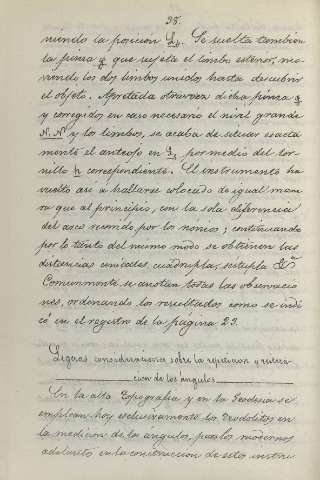 98.
niendo la posición L₁. Se suelta tambien
la pinza q que sujeta el limbo esterior, mo-
viendo los dos limbos unidos hasta descubrir
el objeto. Apretada otra vez dicha pinza q
y corregido en caso necesario el nivel grande
N.N' y los limbos, se acaba de situar exacta
mente el anteojo en L₁ por medio del tor-
nillo h correspondiente. El instrumento ha
vuelto asi á hallarse colocado de igual mane
ra que al principio, con la sola diferencia
del arco recorrido por los nonios; continuando
por lo tanto del mismo modo se obtienen las
distancias cenitales, cuádrupla, séstupla &ª
Comunmente se anotan todas las observacio
nes, ordenando los resultados como se indi
có en el registro de la página 23.
Ligeras consideraciones sobre la repeticion y reitera-
cion de los ángulos.
En la alta Topografia y en la Geodesia se
emplean hoy esclusivamente los Teodolitos en
la medicion de los angulos, pues los modernos
adelantos en la construccion de estos instru